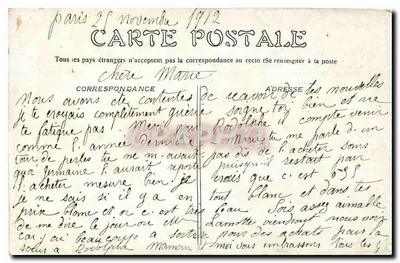 paris 25 novembre 1912
CARTE POSTALE
Tous les pays étrangers n'acceptent pas la correspondance au recto (Se renseigner à la poste
Chère Marie
CORRESPONDANCE
ADRESSE
Nous avons été contentes de recevoir de tes nouvelles
je te croyais complètement guérie soigne toi bien et ne
te fatigue pas ! Mercredi Rodolphe il compte venir
comme l'année dernière Marie tu me parle d'un
de perles tu me m'avait pas dis de l'acheter sous
que Germaine l'aurait restait par
l'acheter mesure bien je crois que c'est 0,95
je ne sais si il y a en tout blanc et dans tes
prix blanc et or c'est très beau Sois assez aimable
de me dire le jour ou Mr Lamotte viendront nous voir
car j'ai beaucoup a sortir pour des achats pas a
a Rodolphe Maman moi vous embrassons tous les